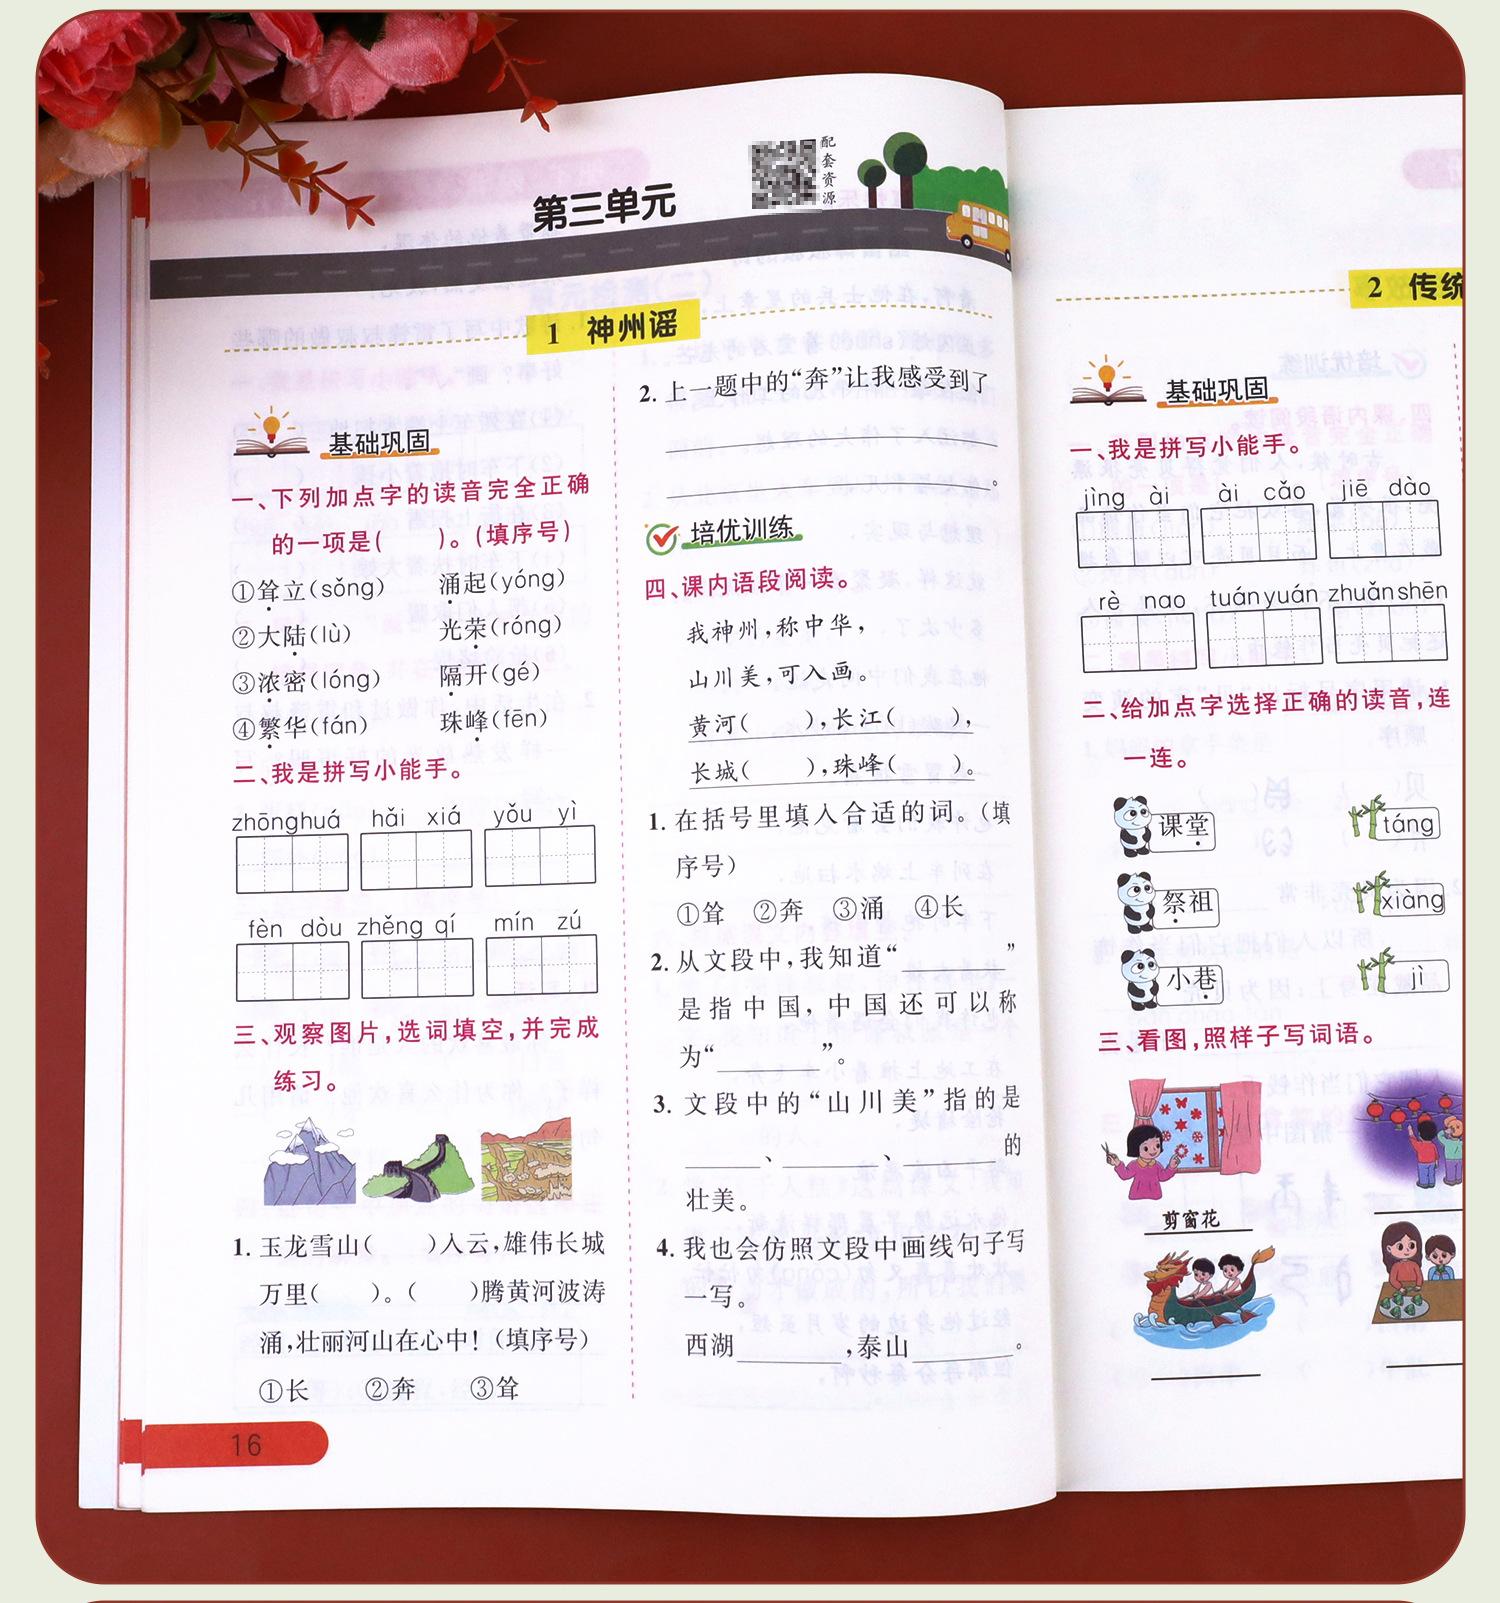 第三单元
配套资源
1 神州谣
基础巩固
一、下列加点字的读音完全正确
的一项是(　　)。(填序号)
①耸立(sǒng)　涌起(yóng)
②大陆(lù)　光荣(róng)
③浓密(lóng)　隔开(gé)
④繁华(fán)　珠峰(fēn)
二、我是拼写小能手。
zhōnghuá　hǎi xiá　yǒu yì
fèn dòu　zhěng qí　mín zú
三、观察图片,选词填空,并完成
练习。
1. 玉龙雪山(　　)入云,雄伟长城
万里(　　)。(　　)腾黄河波涛
涌,壮丽河山在心中!(填序号)
①长　②奔　③耸
16
2. 上一题中的“奔”让我感受到了
________________
________________。
培优训练
四、课内语段阅读。
我神州,称中华,
山川美,可入画。
黄河(　　),长江(　　),
长城(　　),珠峰(　　)。
1. 在括号里填入合适的词。(填
序号)
①耸　②奔　③涌　④长
2. 从文段中,我知道“________”
是指中国,中国还可以称
为“________”。
3. 文段中的“山川美”指的是
______、________、________的
壮美。
4. 我也会仿照文段中画线句子写
一写。
西湖________,泰山________。
2 传统
基础巩固
一、我是拼写小能手。
jìng ài　ài cǎo　jiē dào
rè nao　tuán yuán　zhuǎn shēn
二、给加点字选择正确的读音,连
一连。
课堂　táng
祭祖　xiàng
小巷　jì
三、看图,照样子写词语。
剪窗花